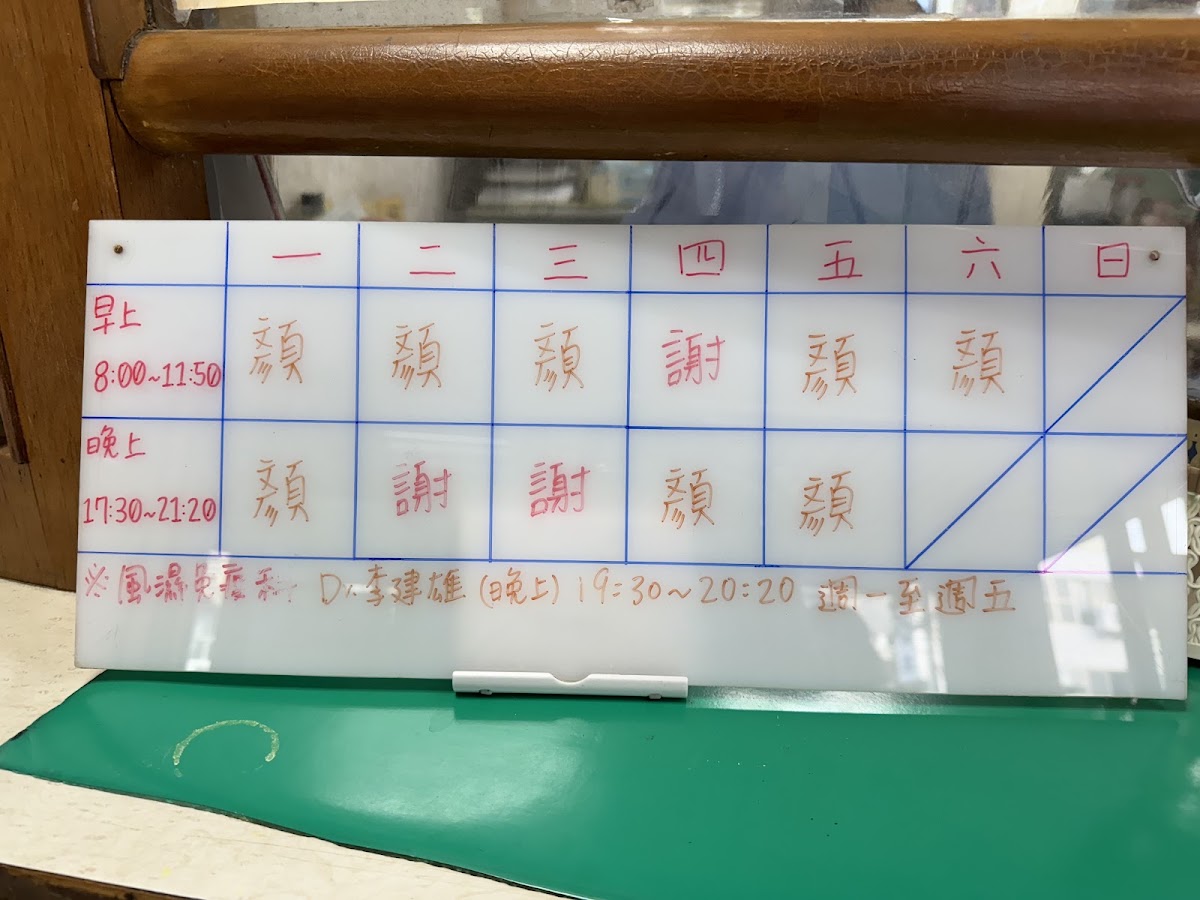 一 二 三 四 五 六 日
早上
8:00~11:50 顏 顏 顏 謝 顏 顏
晚上
17:30~21:20 顏 謝 謝 顏 顏
※風濕免疫科 Dr李建雄(晚上)19:30~20:20 週一至週五